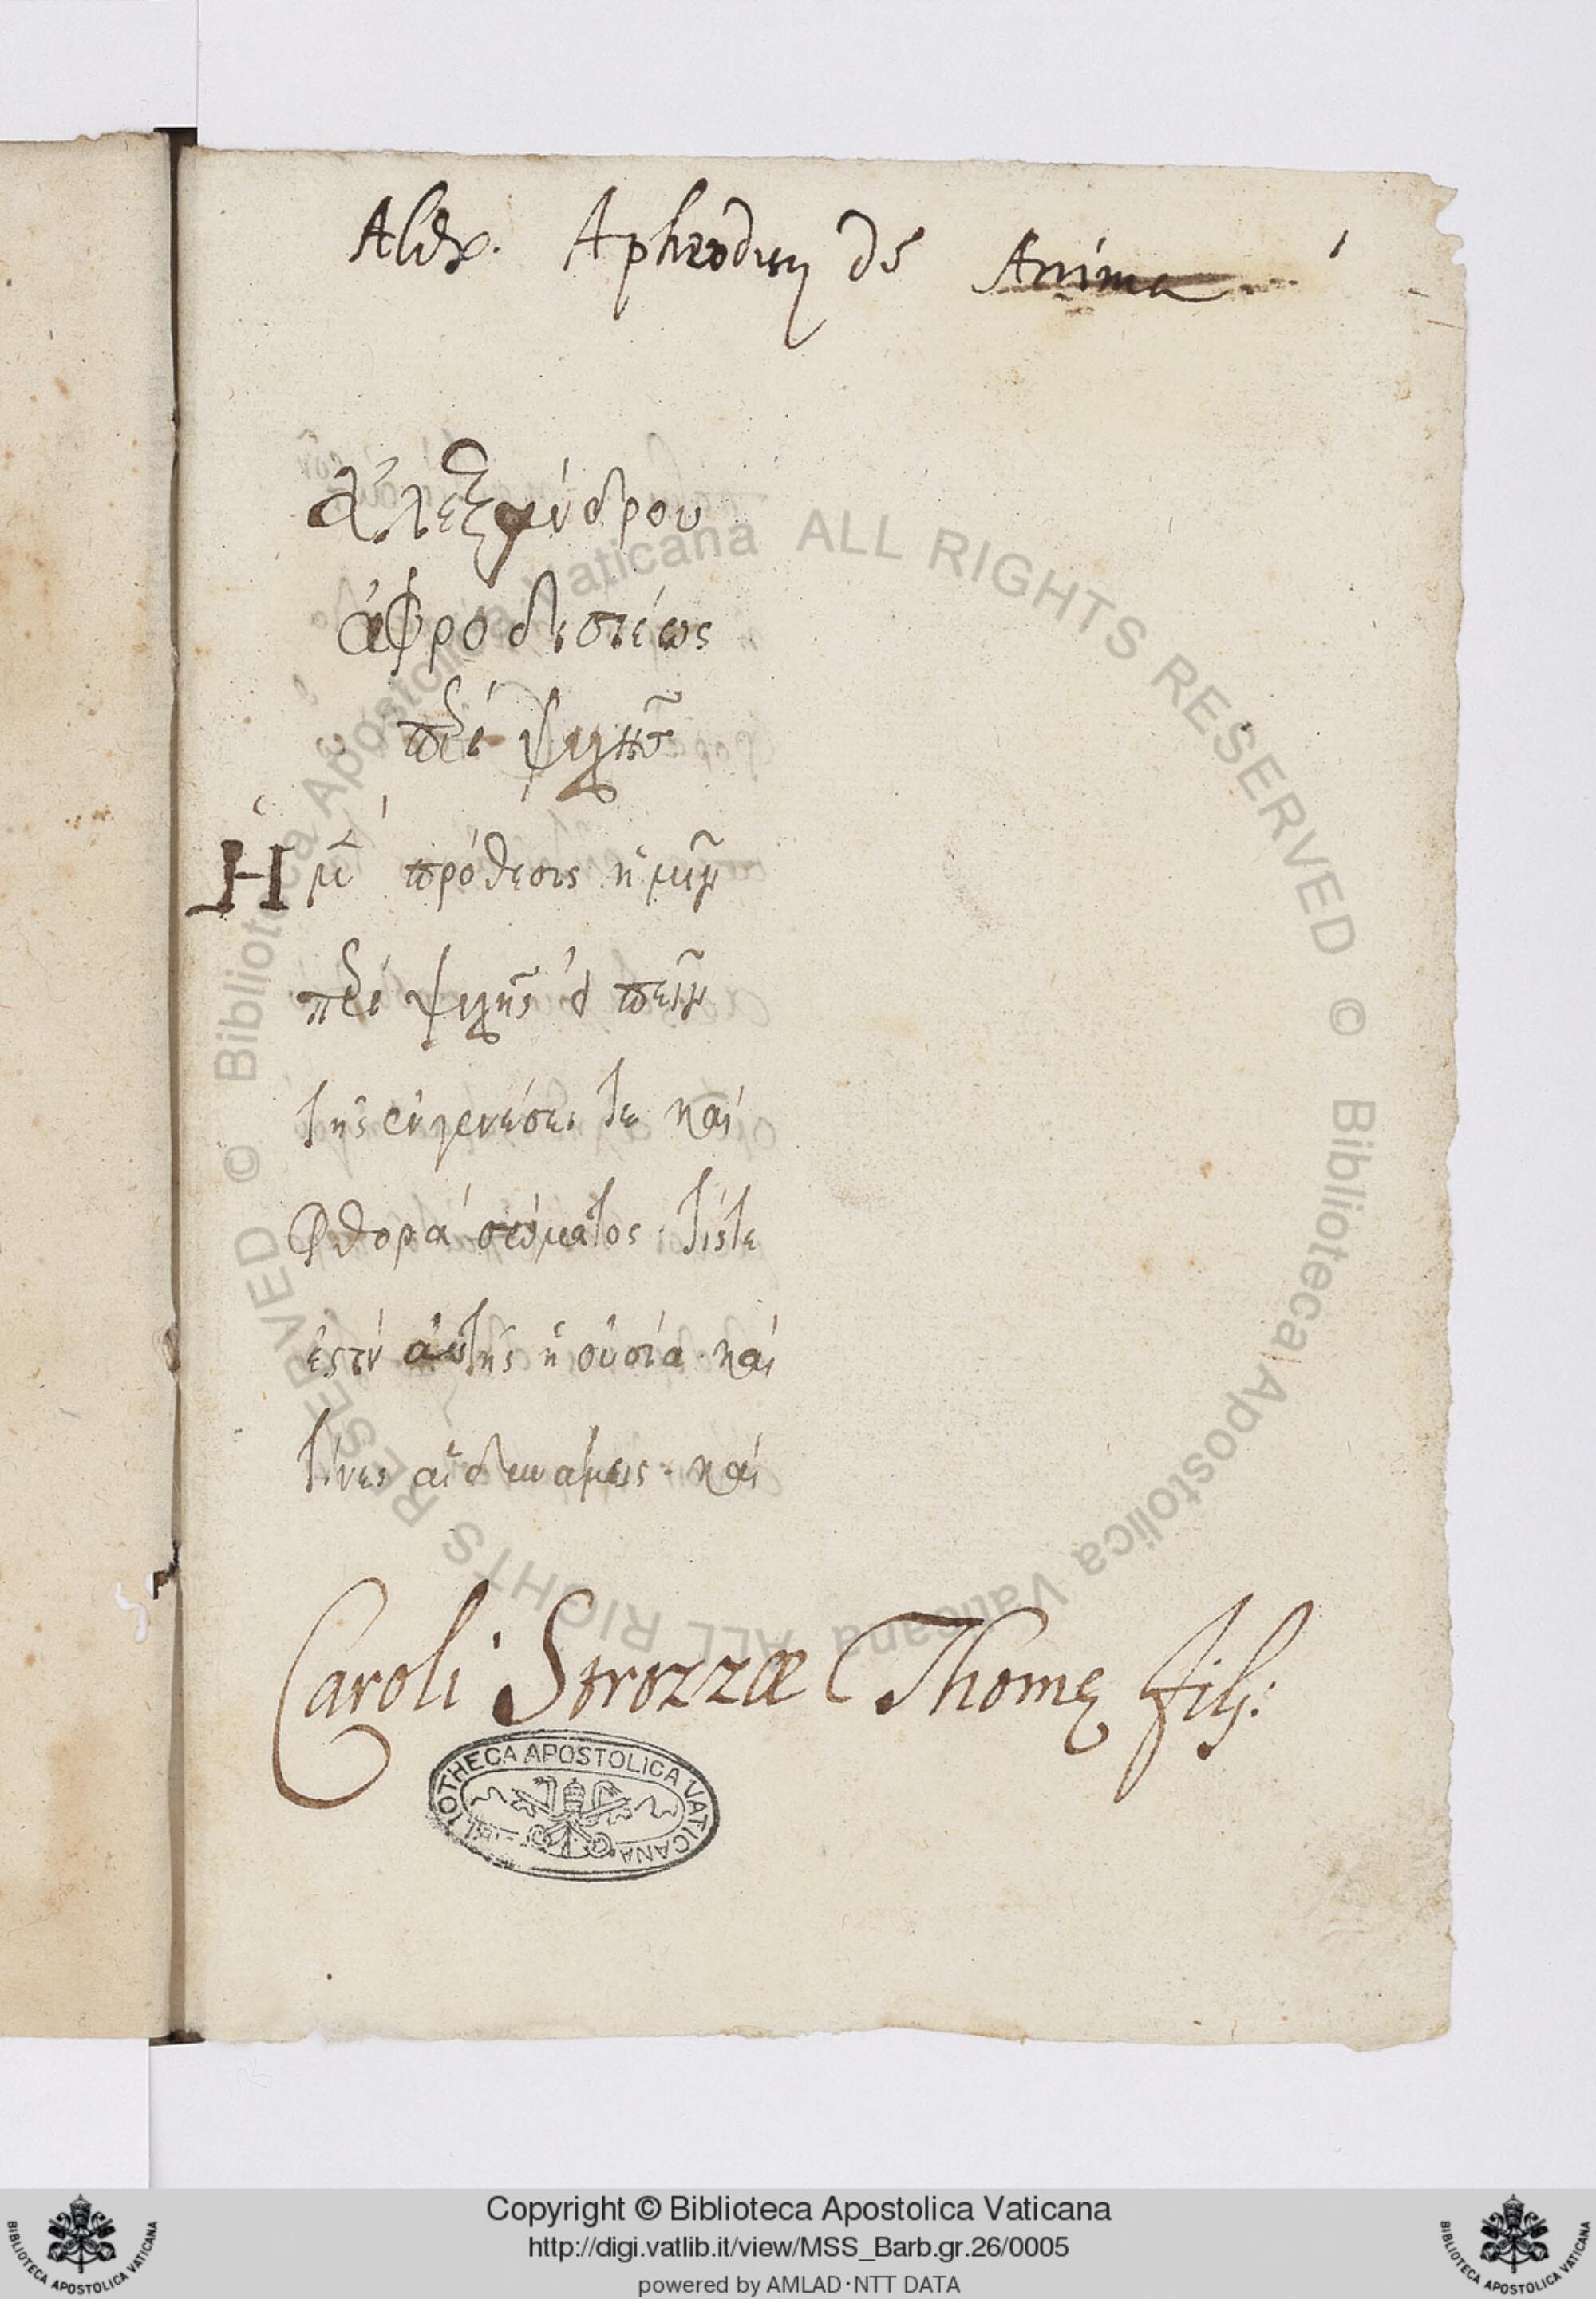 Alex. Aphrodisij de Anima
ἀλεξάνδρου
ἀφροδισιέως
περὶ ψυχῆς
Ἡ μὲν πρόθεσις ἡμῖν
περὶ ψυχῆς εἰπεῖν
τῆς ἐν γενέσει τε καὶ
φθορᾷ σώματος· τίς τε
ἐστὶν αὐτῆς ἡ οὐσία· καὶ
τίνες αἱ δυνάμεις· καὶ
Caroli Strozzæ Thomę filij:
BIBLIOTHECA APOSTOLICA VATICANA
© Biblioteca Apostolica Vaticana ALL RIGHTS RESERVED © Biblioteca Apostolica Vaticana ALL RIGHTS RESERVED
Copyright © Biblioteca Apostolica Vaticana
http://digi.vatlib.it/view/MSS_Barb.gr.26/0005
powered by AMLAD·NTT DATA
BIBLIOTECA APOSTOLICA VATICANA
BIBLIOTECA APOSTOLICA VATICANA